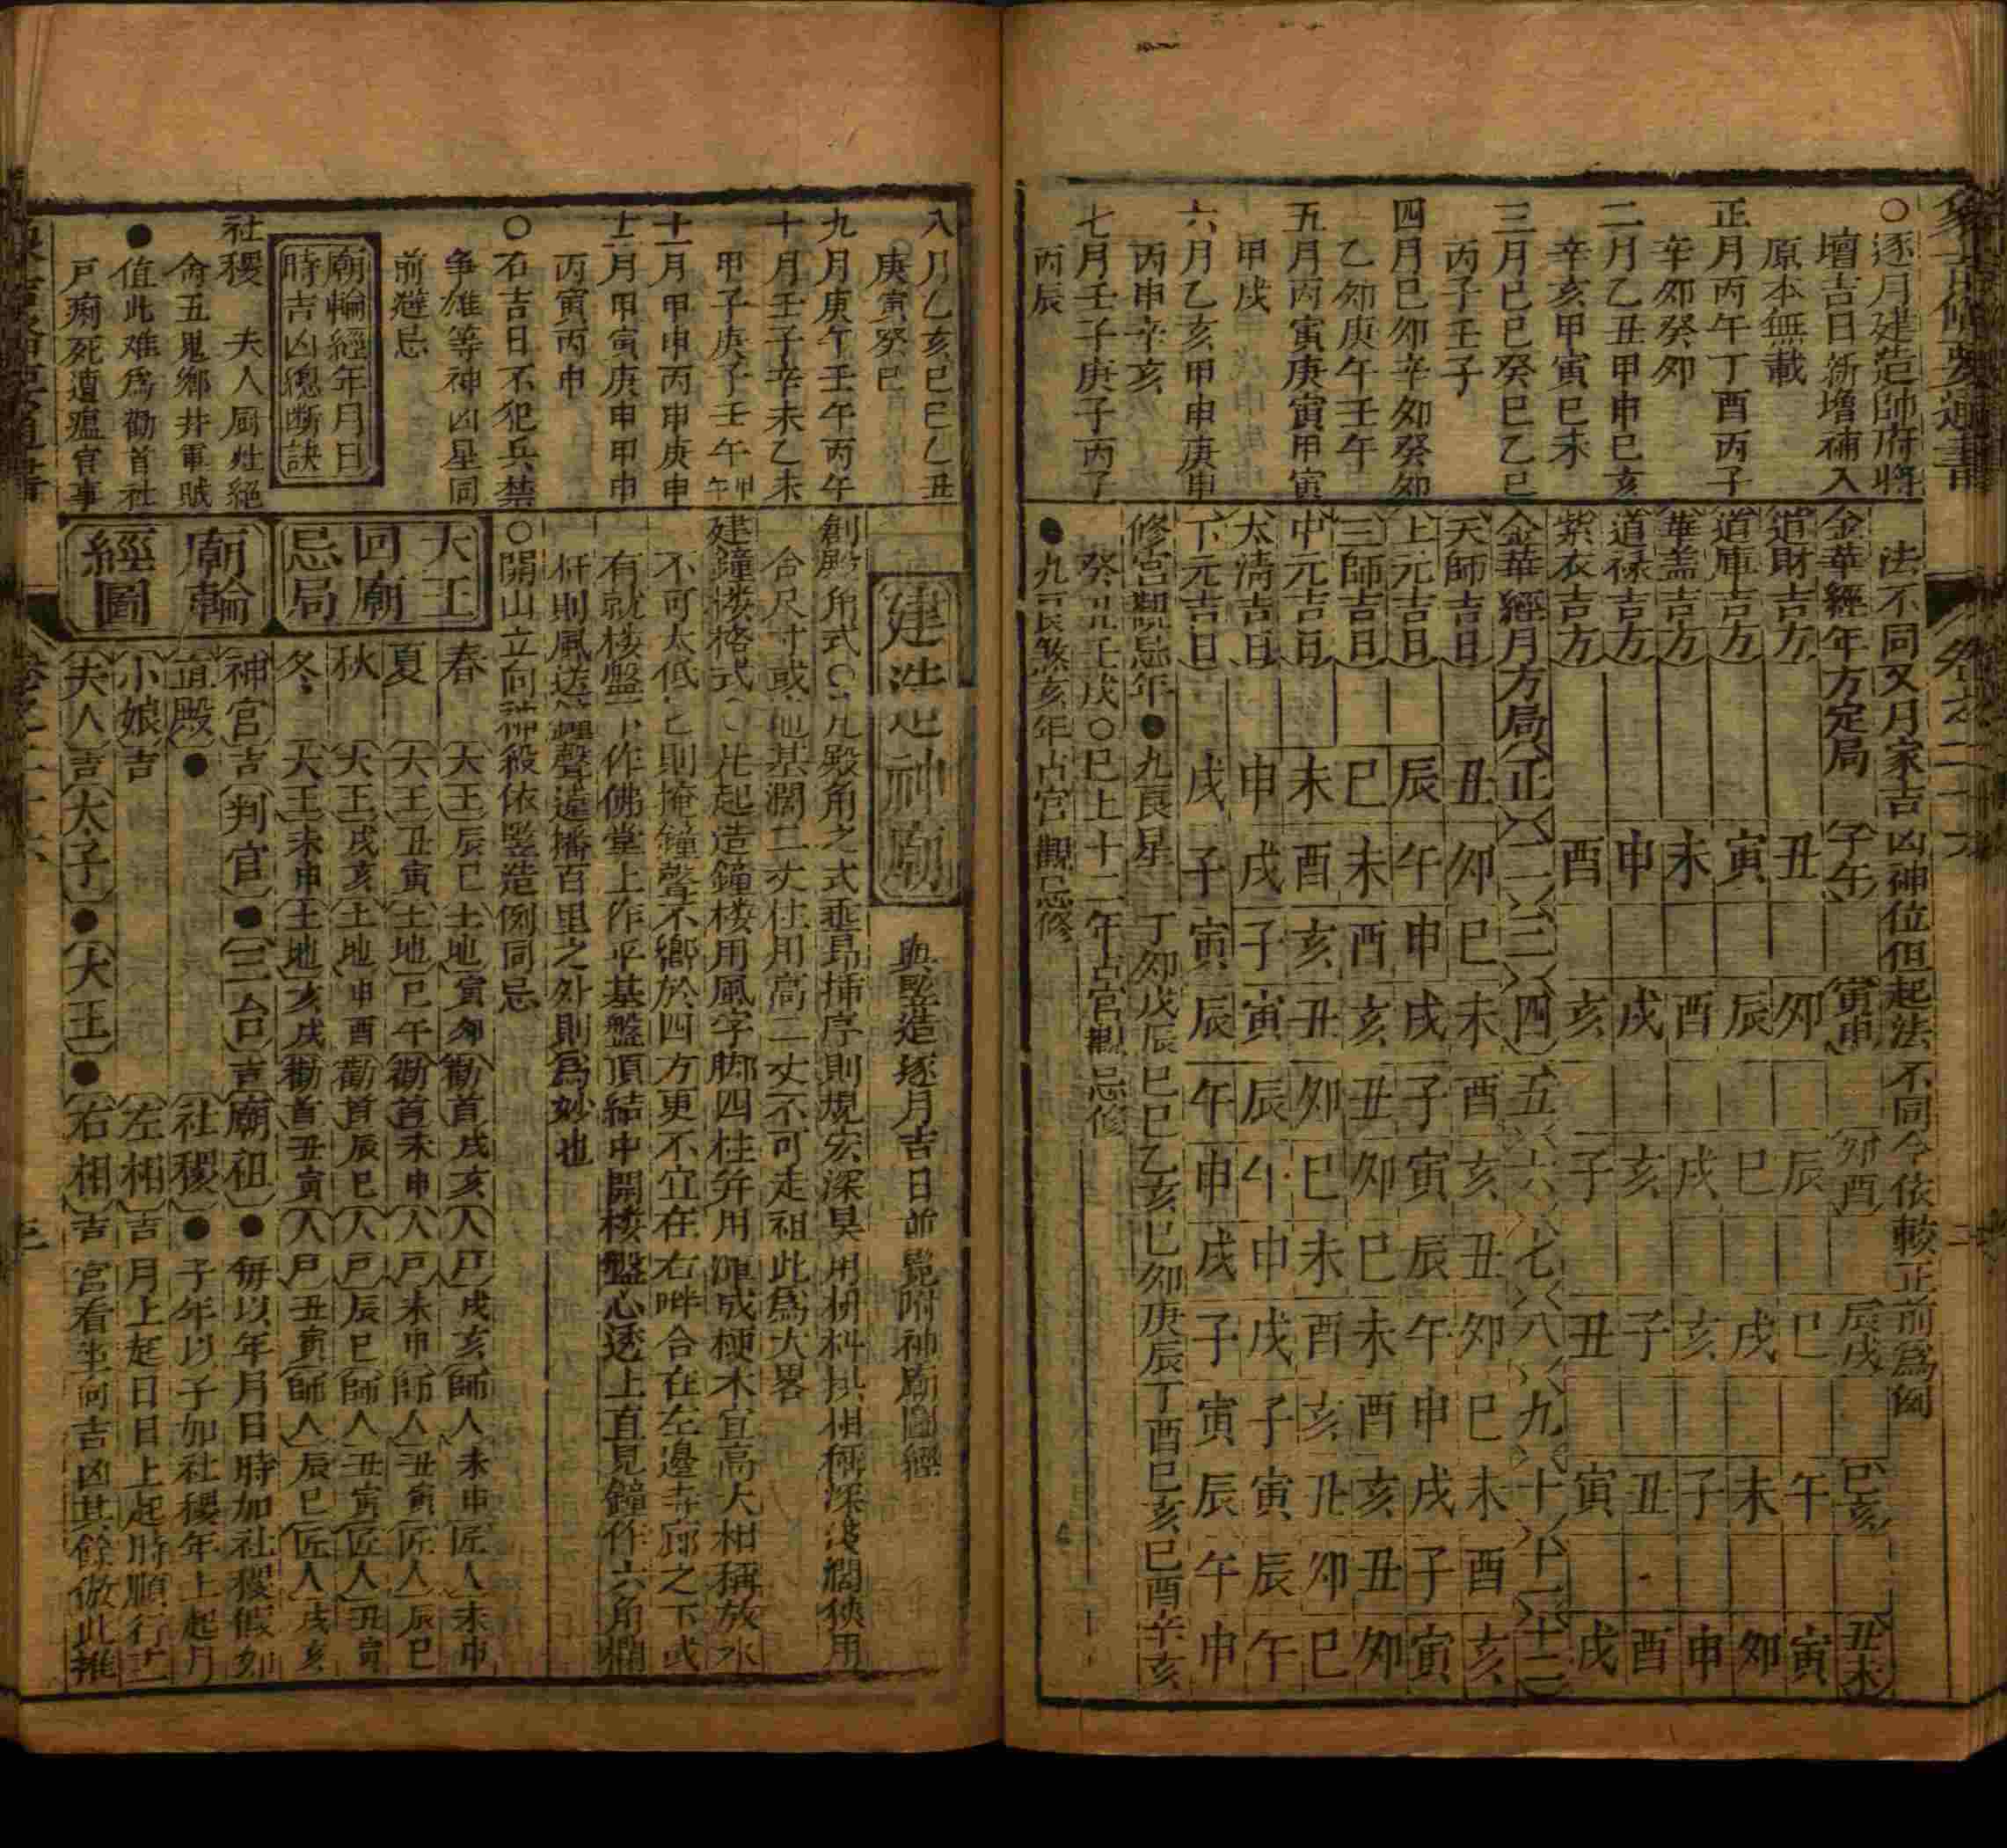 ○逐月建造師府將
壇吉日新增補入
原本無載
正月丙午丁酉丙子
辛卯癸卯
二月乙丑甲申巳亥
辛亥甲寅巳未
三月巳巳癸巳乙巳
丙子壬子
四月巳卯辛卯癸卯
乙卯庚午壬午
五月丙寅庚寅甲寅
甲戌
六月乙亥甲申庚申
丙申辛亥
七月壬子庚子丙子
丙辰
法不同又月家吉凶神位但起法不同今依較正前為例
金華經年方定局 子午 寅申 卯酉 辰戌 巳亥 丑未
道財吉方 丑 卯 辰 巳 午 寅
道庫吉方 寅 辰 巳 戌 未 卯
華盖吉方 未 酉 戌 亥 子 申
道祿吉方 申 戌 亥 子 丑 酉
紫衣吉方 酉 亥 子 丑 寅 戌
金華經月方局 正 二 三 四 五 六 七 八 九 十 十一 十二
天師吉日 丑 卯 巳 未 酉 亥 丑 卯 巳 未 酉 亥
上元吉日 辰 午 申 戌 子 寅 辰 午 申 戌 子 寅
三師吉日 巳 未 酉 亥 丑 卯 巳 未 酉 亥 丑 卯
中元吉日 未 酉 亥 丑 卯 巳 未 酉 亥 丑 卯 巳
太清吉日 申 戌 子 寅 辰 午 申 戌 子 寅 辰 午
下元吉日 戌 子 寅 辰 午 申 戌 子 寅 辰 午 申
修宮觀忌年●九良星 丁卯戊辰巳巳乙亥巳卯庚辰丁酉巳亥巳酉辛亥
癸丑壬戌○巳上十二年占宮觀忌修
●九良煞亥年占宮觀忌修
八月乙亥巳巳乙丑
庚寅癸巳
九月庚午壬午丙午
十月壬子辛未乙未
甲子庚子壬午
十一月甲申丙申庚申
十二月甲寅庚申甲申
丙寅丙申
○右吉日不犯兵禁
争雄等神凶星同
前避忌
廟輪經年月日
時吉凶總斷訣
社稷 夫人厨灶絕
命五鬼鄉井軍賊
●值此难為勸首社
戸痢死遭瘟官事
建造神廟 與竪造逐月吉日前覧附神廟圖經
創殿角式○凡殿角之式垂昂插序則規宏深具用枬科拱相稱深淺濶狹用
合尺寸或地基濶二丈柱用高二丈不可走祖此為大畧
建鐘楼格式○凡起造鐘楼用風字脚四柱并用渾成梗木宜高大相稱放水
不可太低低則掩鐘聲不嚮於四方更不宜在右畔合在左邊寺廊之下或
有就楼盤下作佛堂上作平基盤頂結中開楼盤心透上直見鐘作六角欄
杆則風送鐘聲遠播百里之外則為妙也
○開山立向神殺依竪造例同忌
大王
回廟
忌局
春 大王辰巳 土地寅卯 勸首戌亥 人戸戌亥 師人未申 匠人未申
夏 大王丑寅 土地巳午 勸首未申 人戸未申 師人丑寅 匠人辰巳
秋 大王戌亥 土地申酉 勸首辰巳 人戸辰巳 師人丑寅 匠人丑寅
冬 大王未申 土地亥戌 勸首丑寅 人戸丑寅 師人辰巳 匠人戌亥
廟輪
經圖
神官吉 判官● 三台吉 廟祖● 每以年月日時加社稷假如
直殿● 社稷● 子年以子加社稷年上起月
小娘吉 左相吉 月上起日日上起時順行十二
夫人吉 太子● 大王● 右相吉 宮看坐何吉凶其餘倣此推